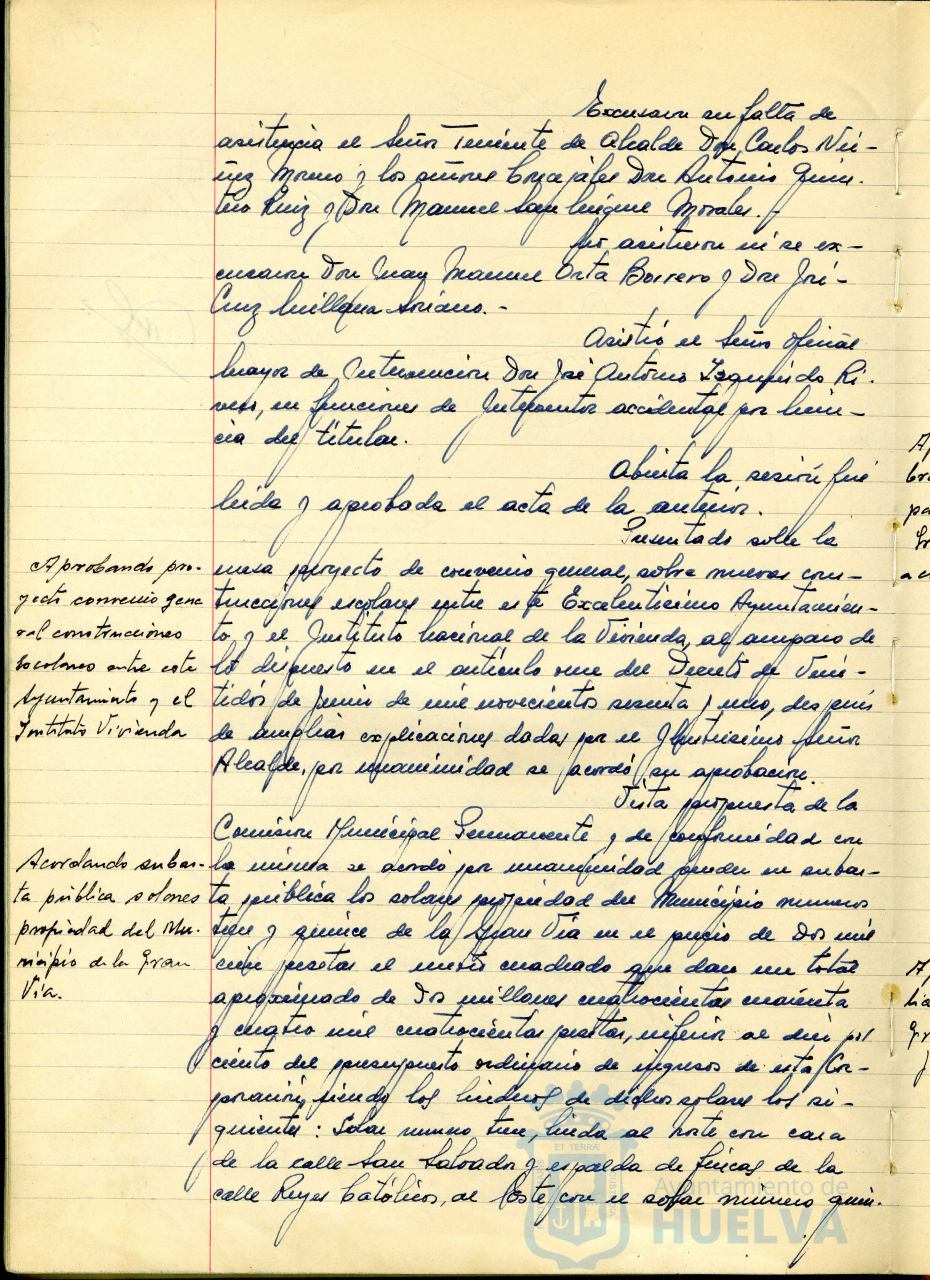 Excusaron su falta de
asistencia el Señor Teniente de Alcalde Don Carlos Nú-
ñez Moreno y los señores Concejales Don Antonio Quin-
tero Ruiz y Don Manuel Sanchíguez Morales.-
No asistieron ni se ex-
cusaron Don Juan Manuel Orta Borrero y Don José
Cruz Soriano.-
Asistió el Señor Oficial
Mayor de Intervención Don José Antonio Izquierdo Ri-
vero, en funciones de Interventor accidental por licen-
cia del titular.
Abierta la sesión fué
leída y aprobada el acta de la anterior.
Presentado sobre la
Aprobando pro-
yecto convenio gene
ral construcciones
escolares entre este
Ayuntamiento y el
Instituto Vivienda
mesa proyecto de convenio general, sobre nuevas cons-
trucciones escolares entre este Excelentísimo Ayuntamien-
to, y el Instituto Nacional de la Vivienda, al amparo de
lo dispuesto en el artículo once del Decreto de Vein-
tidós de Junio de mil novecientos sesenta y uno, después
de amplias explicaciones dadas por el Ilustrísimo Señor
Alcalde, por unanimidad se acordó su aprobación.
Vista propuesta de la
Comisión Municipal Permanente y de conformidad con
Acordando subas-
ta pública solares
propiedad del Mu-
nicipio de la Gran
Vía.
la misma se acordó por unanimidad vender en subas-
ta pública los solares propiedad del Municipio números
trece y quince de la Gran Vía en el precio de Dos mil
cien pesetas el metro cuadrado que dan un total
aproximado de Dos millones cuatrocientas cuarenta
y cuatro mil cuatrocientas pesetas, inferior al diez por
ciento del presupuesto ordinario de ingresos de esta Cor-
poración, siendo los linderos de dichos solares los si-
guientes: Solar número trece, linda al Norte con casa
de la calle San Salvador y espalda de fincas de la
calle Reyes Católicos, al Este con el solar número quin-
Ayuntamiento de
HUELVA